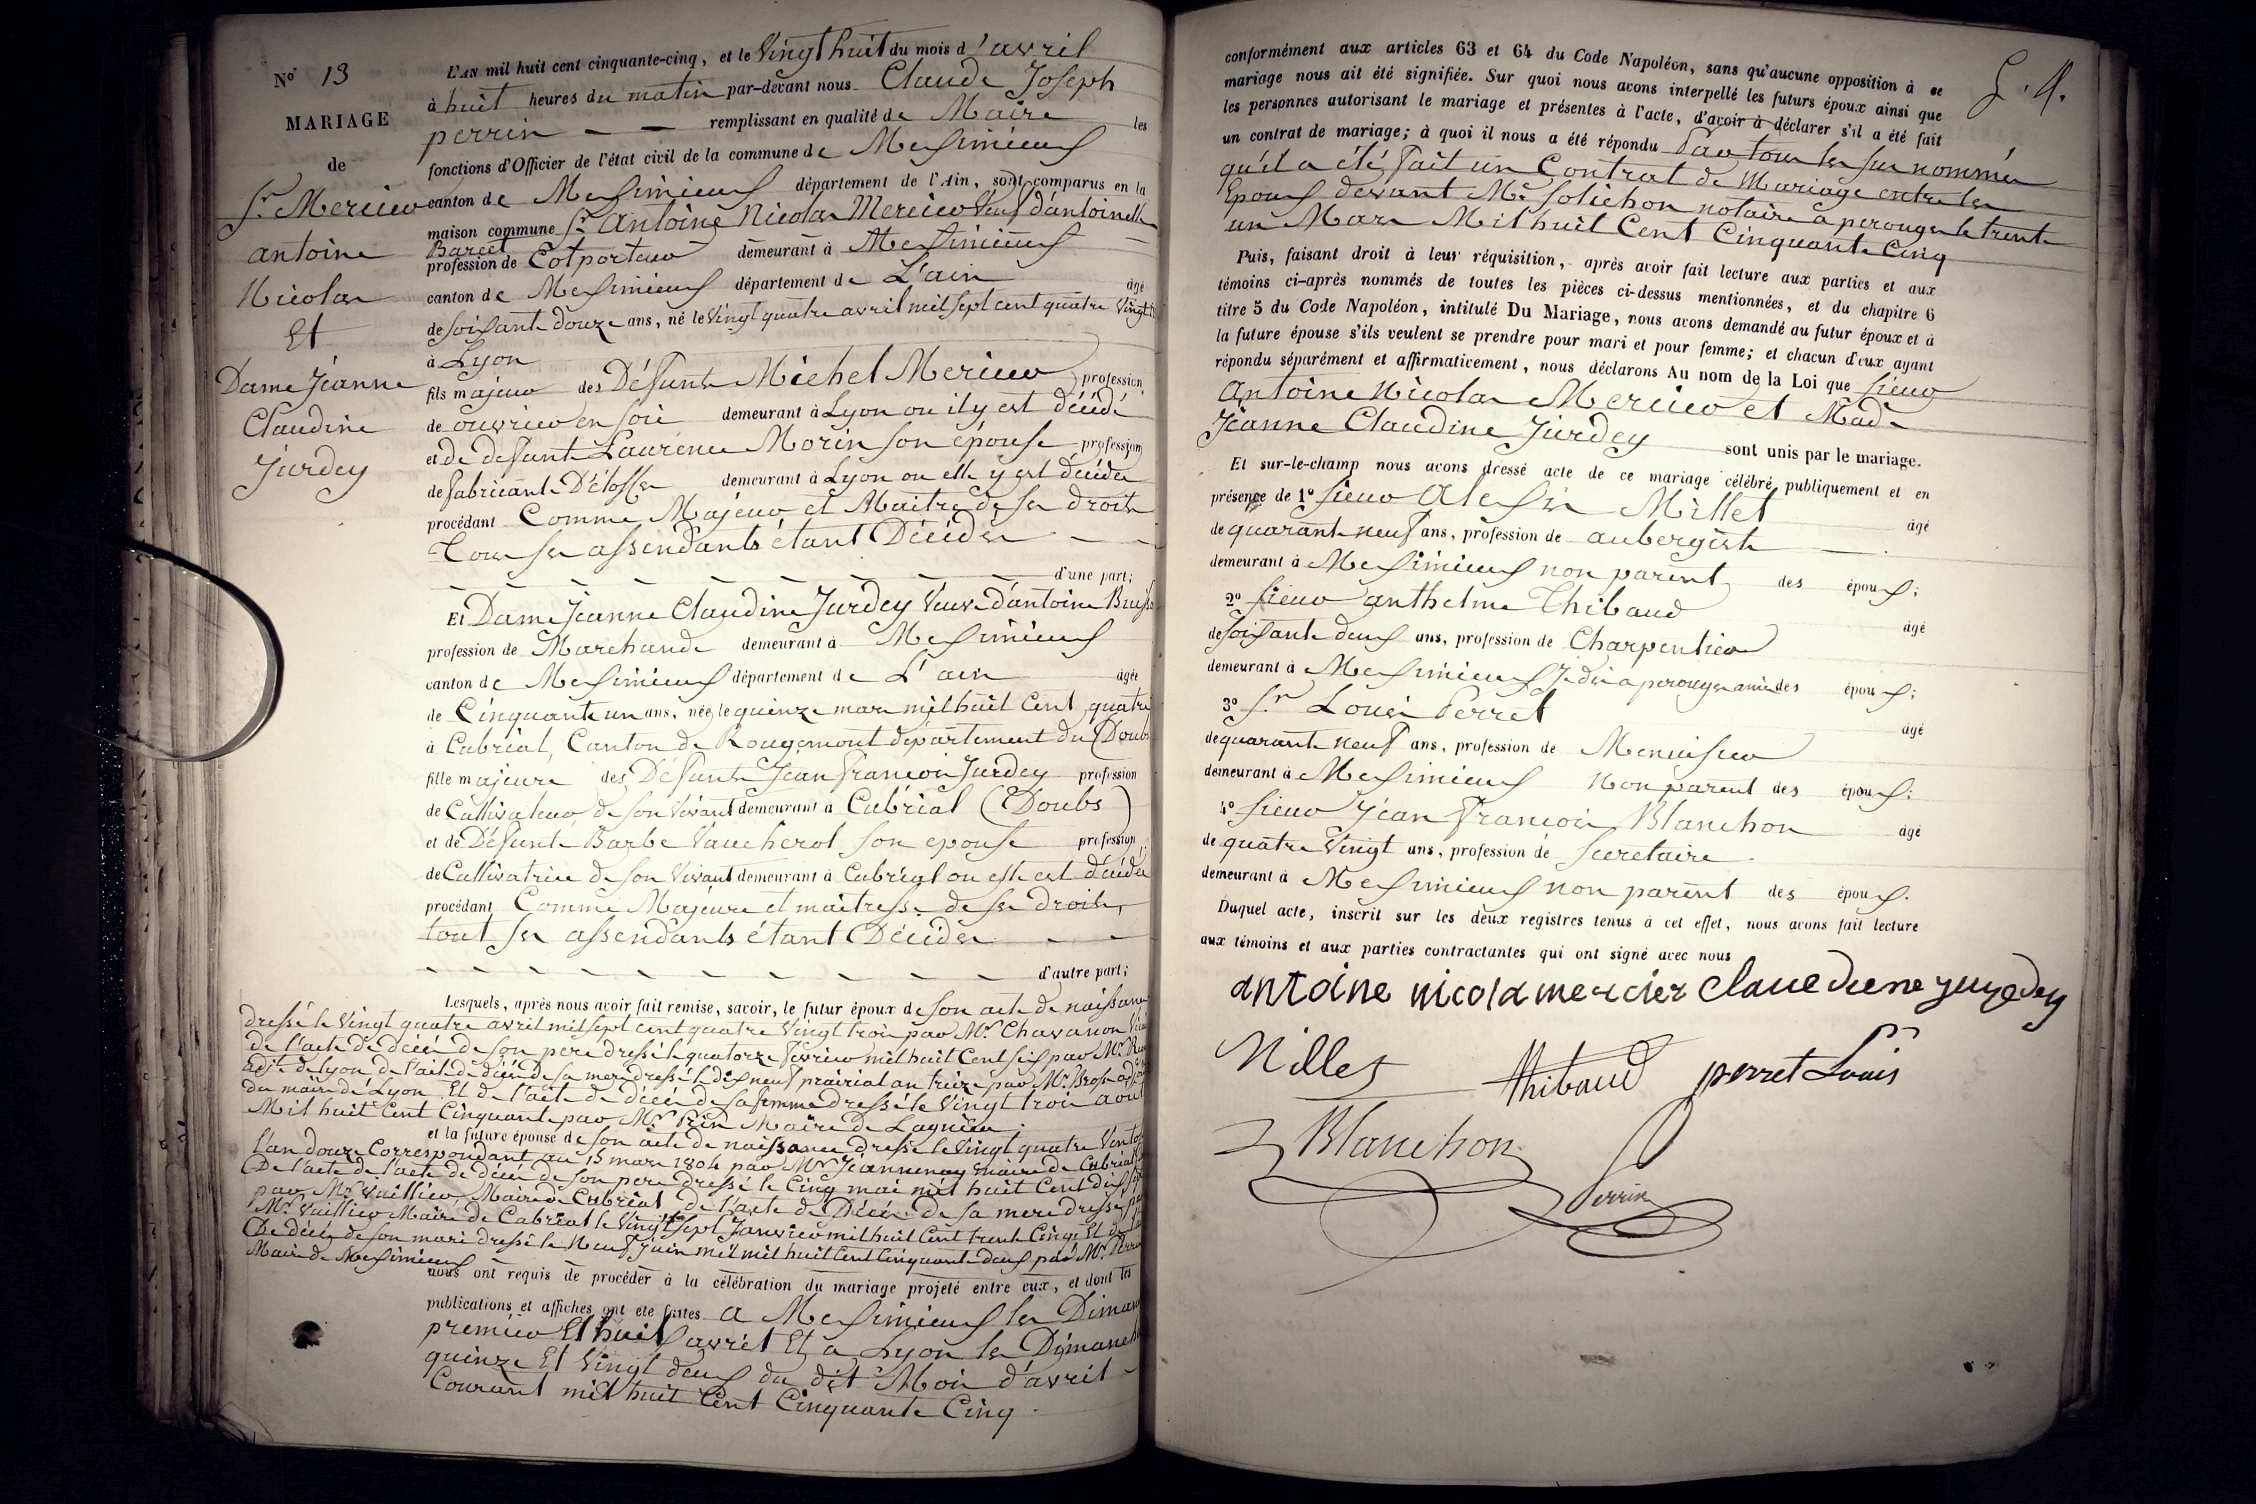 No 13
MARIAGE
de
Sr Mercier
antoine
Nicolas
Et
Dame Jeanne
Claudine
Jurdey
L'AN mil huit cent cinquante-cinq, et le Vingt huit du mois d'avril
à huit heures du matin par-devant nous Claude Joseph
perrin remplissant en qualité de Maire les
fonctions d'Officier de l'état civil de la commune de Messimieux
canton de Messimieux département de l'Ain, sont comparus en la
maison commune Sr Antoine Nicolas Mercier Veuf d'antoinette
Barcet
profession de Colporteur demeurant à Messimieux
canton de Messimieux département de L'ain âgé
de soissante douze ans, né le Vingt quatre avril mil sept cent quatre Vingt
à Lyon
fils majeur des Défunts Michel Mercier profession
de ouvrier en soie demeurant à Lyon ou il y est décédé
et de defunte Laurence Morin son épouse profession
de fabricante D'étoffes demeurant à Lyon ou elle y est décédée
procédant Comme Majeur et Maitre de ses droits
Tous ses assendants étant Décédés
d'une part;
Et Dame Jeanne Claudine Jurdey Veuve d'antoine
profession de Marchande demeurant à Messimieux
canton de Messimieux département de L'ain âgée
de Cinquante un ans, née le quinze mars mil huit Cent quatre
à Cubrial, Canton de Rougemont département du (Doubs
fille majeure des Défunts Jean françois Jurdey profession
de Cultivateur de son Vivant demeurant à Cubrial (Doubs)
et de Défunte Barbe Vaucherot son epouse profession
de Cultivatrice de son Vivant demeurant à Cubrial ou elle est décédée
procédant Comme Majeure et maitresse de ses droits,
tout ses assendants étant Décédés
d'autre part;
Lesquels, après nous avoir fait remise, savoir, le futur époux de son acte de naissance
dressé le Vingt quatre avril mil sept cent quatre Vingt trois par Mr Chavanon
de l'acte de décés de son pere dressé le quatorze fevrier mil huit Cent six par Mr
de Lyon de l'acte de décés de sa mere dressé le dix neuf prairial an treize par Mr Brosse
du maire de Lyon Et de l'acte de décés de sa femme dressé le Vingt trois aout
Mil huit Cent Cinquante par Mr Prin Maire de Lagnieu;
et la future épouse de son acte de naissance dressé le Vingt quatre
l'an douze Correspondant au 15 mars 1804 par Mr Jeannenay maire de Cubrial
De l'acte de l'acte de décés de son pere dressé le Cinq mai mil huit Cent dix
par Mr Vuillier Maire de Cubrial de l'acte de Décés de sa mere dressé
Mr Vuillier Maire de Cubrial le Vingt sept Janvier mil huit Cent trente Cinq Et de
De décés de son mari dressé le Neuf Juin mil mil huit Cent Cinquante deux par Mr
Maire de Messimieux
nous ont requis de procéder à la célébration du mariage projeté entre eux, et dont les
publications et affiches ont été faites à Messimieux les
premier Et huit avril Et a Lyon les
quinze Et Vingt deux du dit Mois d'avril
Courant mil huit Cent Cinquante Cinq
conformément aux articles 63 et 64 du Code Napoléon, sans qu'aucune opposition à ce
mariage nous ait été signifiée. Sur quoi nous avons interpellé les futurs époux ainsi que
les personnes autorisant le mariage et présentes à l'acte, d'avoir à déclarer s'il a été fait
un contrat de mariage; à quoi il nous a été répondu Par tous les sus nommés
qu'il a été fait un Contrat de Mariage entre les
Epoux devant Me Solichon notaire a perouges le trente
un Mars Mil huit Cent Cinquante Cinq
Puis, faisant droit à leur réquisition, après avoir fait lecture aux parties et aux
témoins ci-après nommés de toutes les pièces ci-dessus mentionnées, et du chapitre 6
titre 5 du Code Napoléon, intitulé Du Mariage, nous avons demandé au futur époux et à
la future épouse s'ils veulent se prendre pour mari et pour femme; et chacun d'eux ayant
répondu séparément et affirmativement, nous déclarons Au nom de la Loi que Sieur
Antoine Nicolas Mercier et Made
Jeanne Claudine Jurdey sont unis par le mariage.
Et sur-le-champ nous avons dressé acte de ce mariage célébré publiquement et en
présence de 1° Sieur Alessis Millet âgé
de quarante neuf ans, profession de aubergiste
demeurant à Messimieux non parent des époux;
2° Sieur anthelme Thibaud âgé
de soissante deux ans, profession de Charpentier
demeurant à Messimieux a perouges amis des époux;
3° Sr Louis Perret âgé
de quarante neuf ans, profession de Menuisier
demeurant à Messimieux Non parent des époux;
4° Sieur Jean François Blanchon âgé
de quatre Vingt ans, profession de Secretaire
demeurant à Messimieux non parent des époux.
Duquel acte, inscrit sur les deux registres tenus à cet effet, nous avons fait lecture
aux témoins et aux parties contractantes qui ont signé avec nous
antoine nicola mercier
Millet Thibaud perret Louis
Blanchon
Perrin